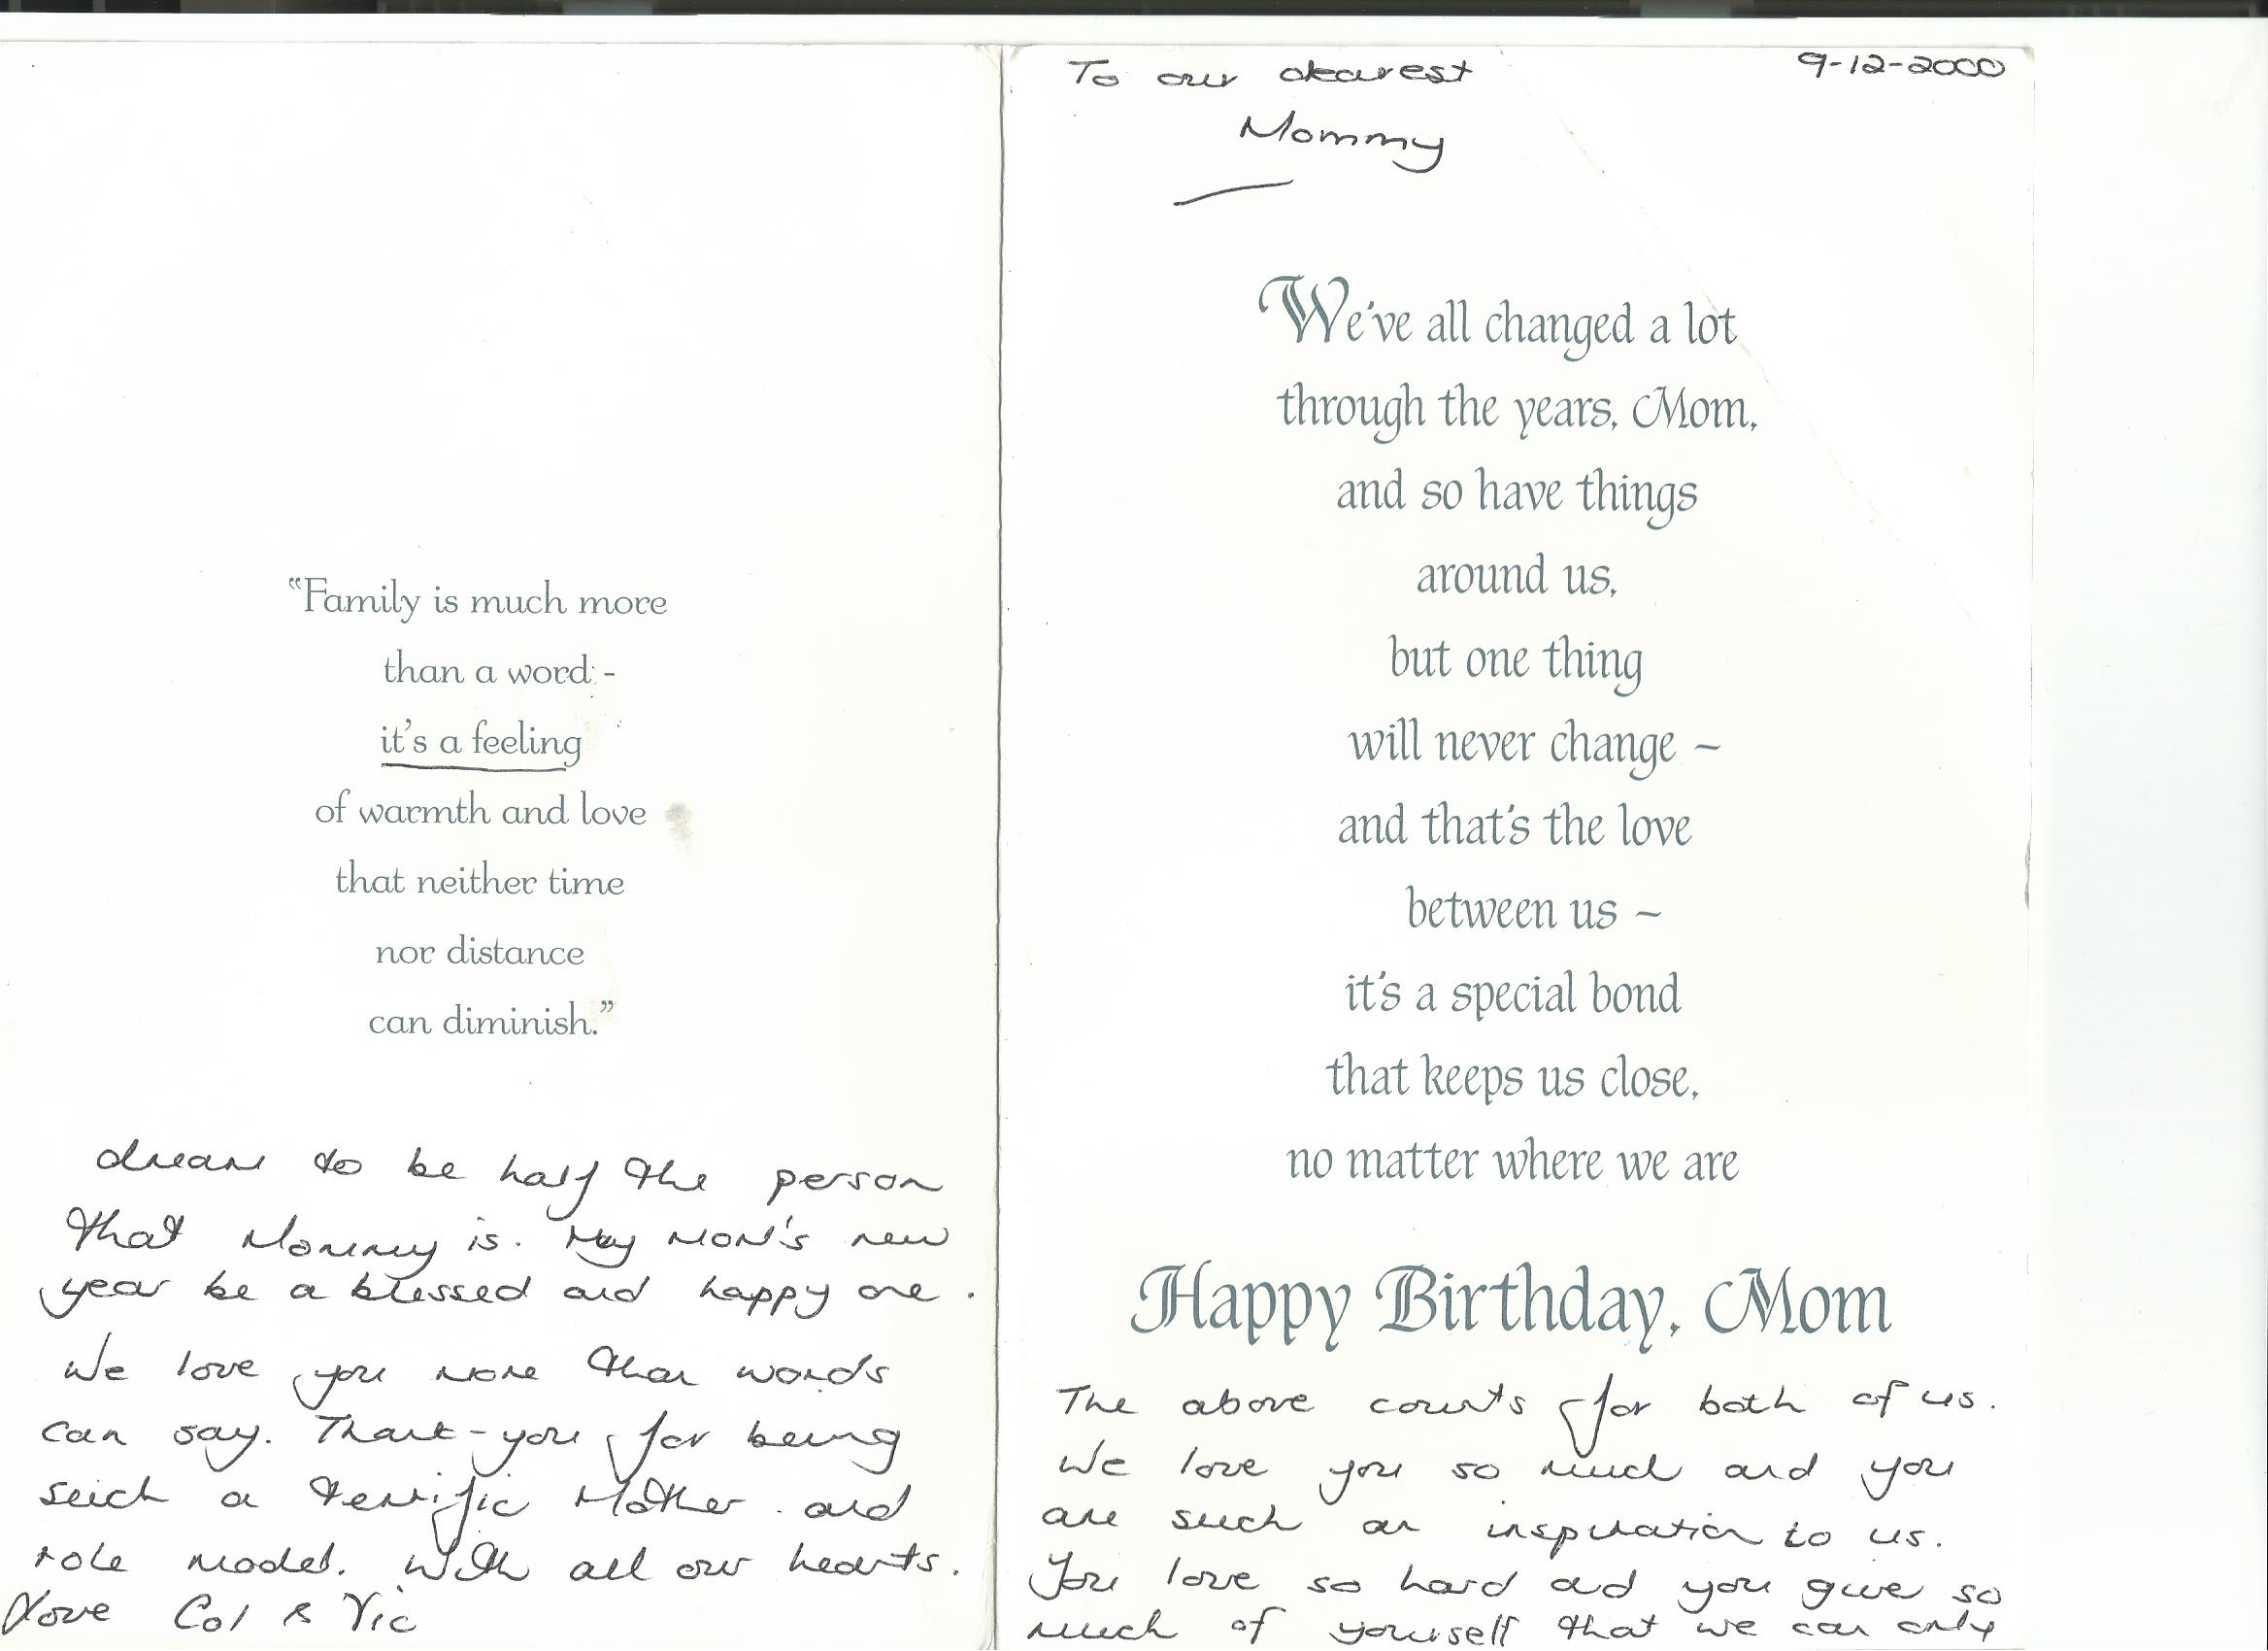 "Family is much more
than a word -
it's a feeling
of warmth and love
that neither time
nor distance
can diminish."
To our dearest
Mommy
9-12-2000
We've all changed a lot
through the years, Mom,
and so have things
around us,
but one thing
will never change ~
and that's the love
between us ~
it's a special bond
that keeps us close,
no matter where we are
Happy Birthday, Mom
The above counts for both of us.
We love you so much and you
are such an inspiration to us.
You love so hard and you give so
much of yourself that we can only
dream to be half the person
that Mommy is. May Mom's new
year be a blessed and happy one.
We love you more than words
can say. Thank-you for being
such a terrific Mother and
role model. With all our hearts.
Love Col & Vic